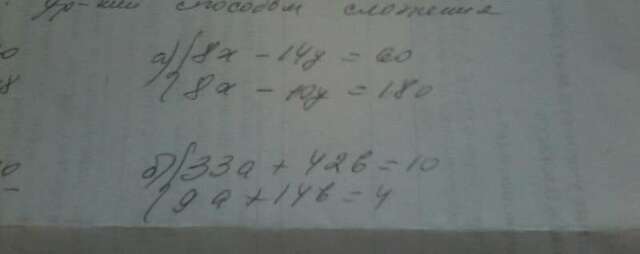 ур-ний способом сложения
а) { 8x - 14y = 60
8x - 10y = 180
б) { 33a + 42b = 10
9a + 14b = 4